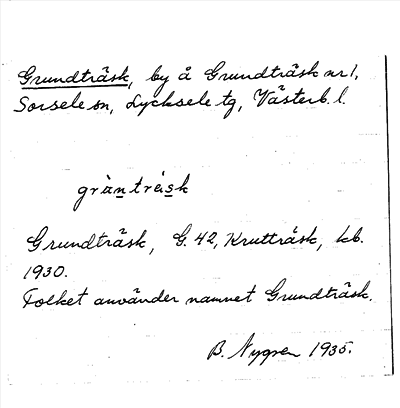 Grundträsk, by å Grundträsk nr 1,
Sorsele sn, Lycksele tg, Västerb. l.
gràntrá̀sk
Grundträsk, G. 42, Krutträsk, kb.
1930.
Folket använder namnet Grundträsk.
B. Nygren 1935.